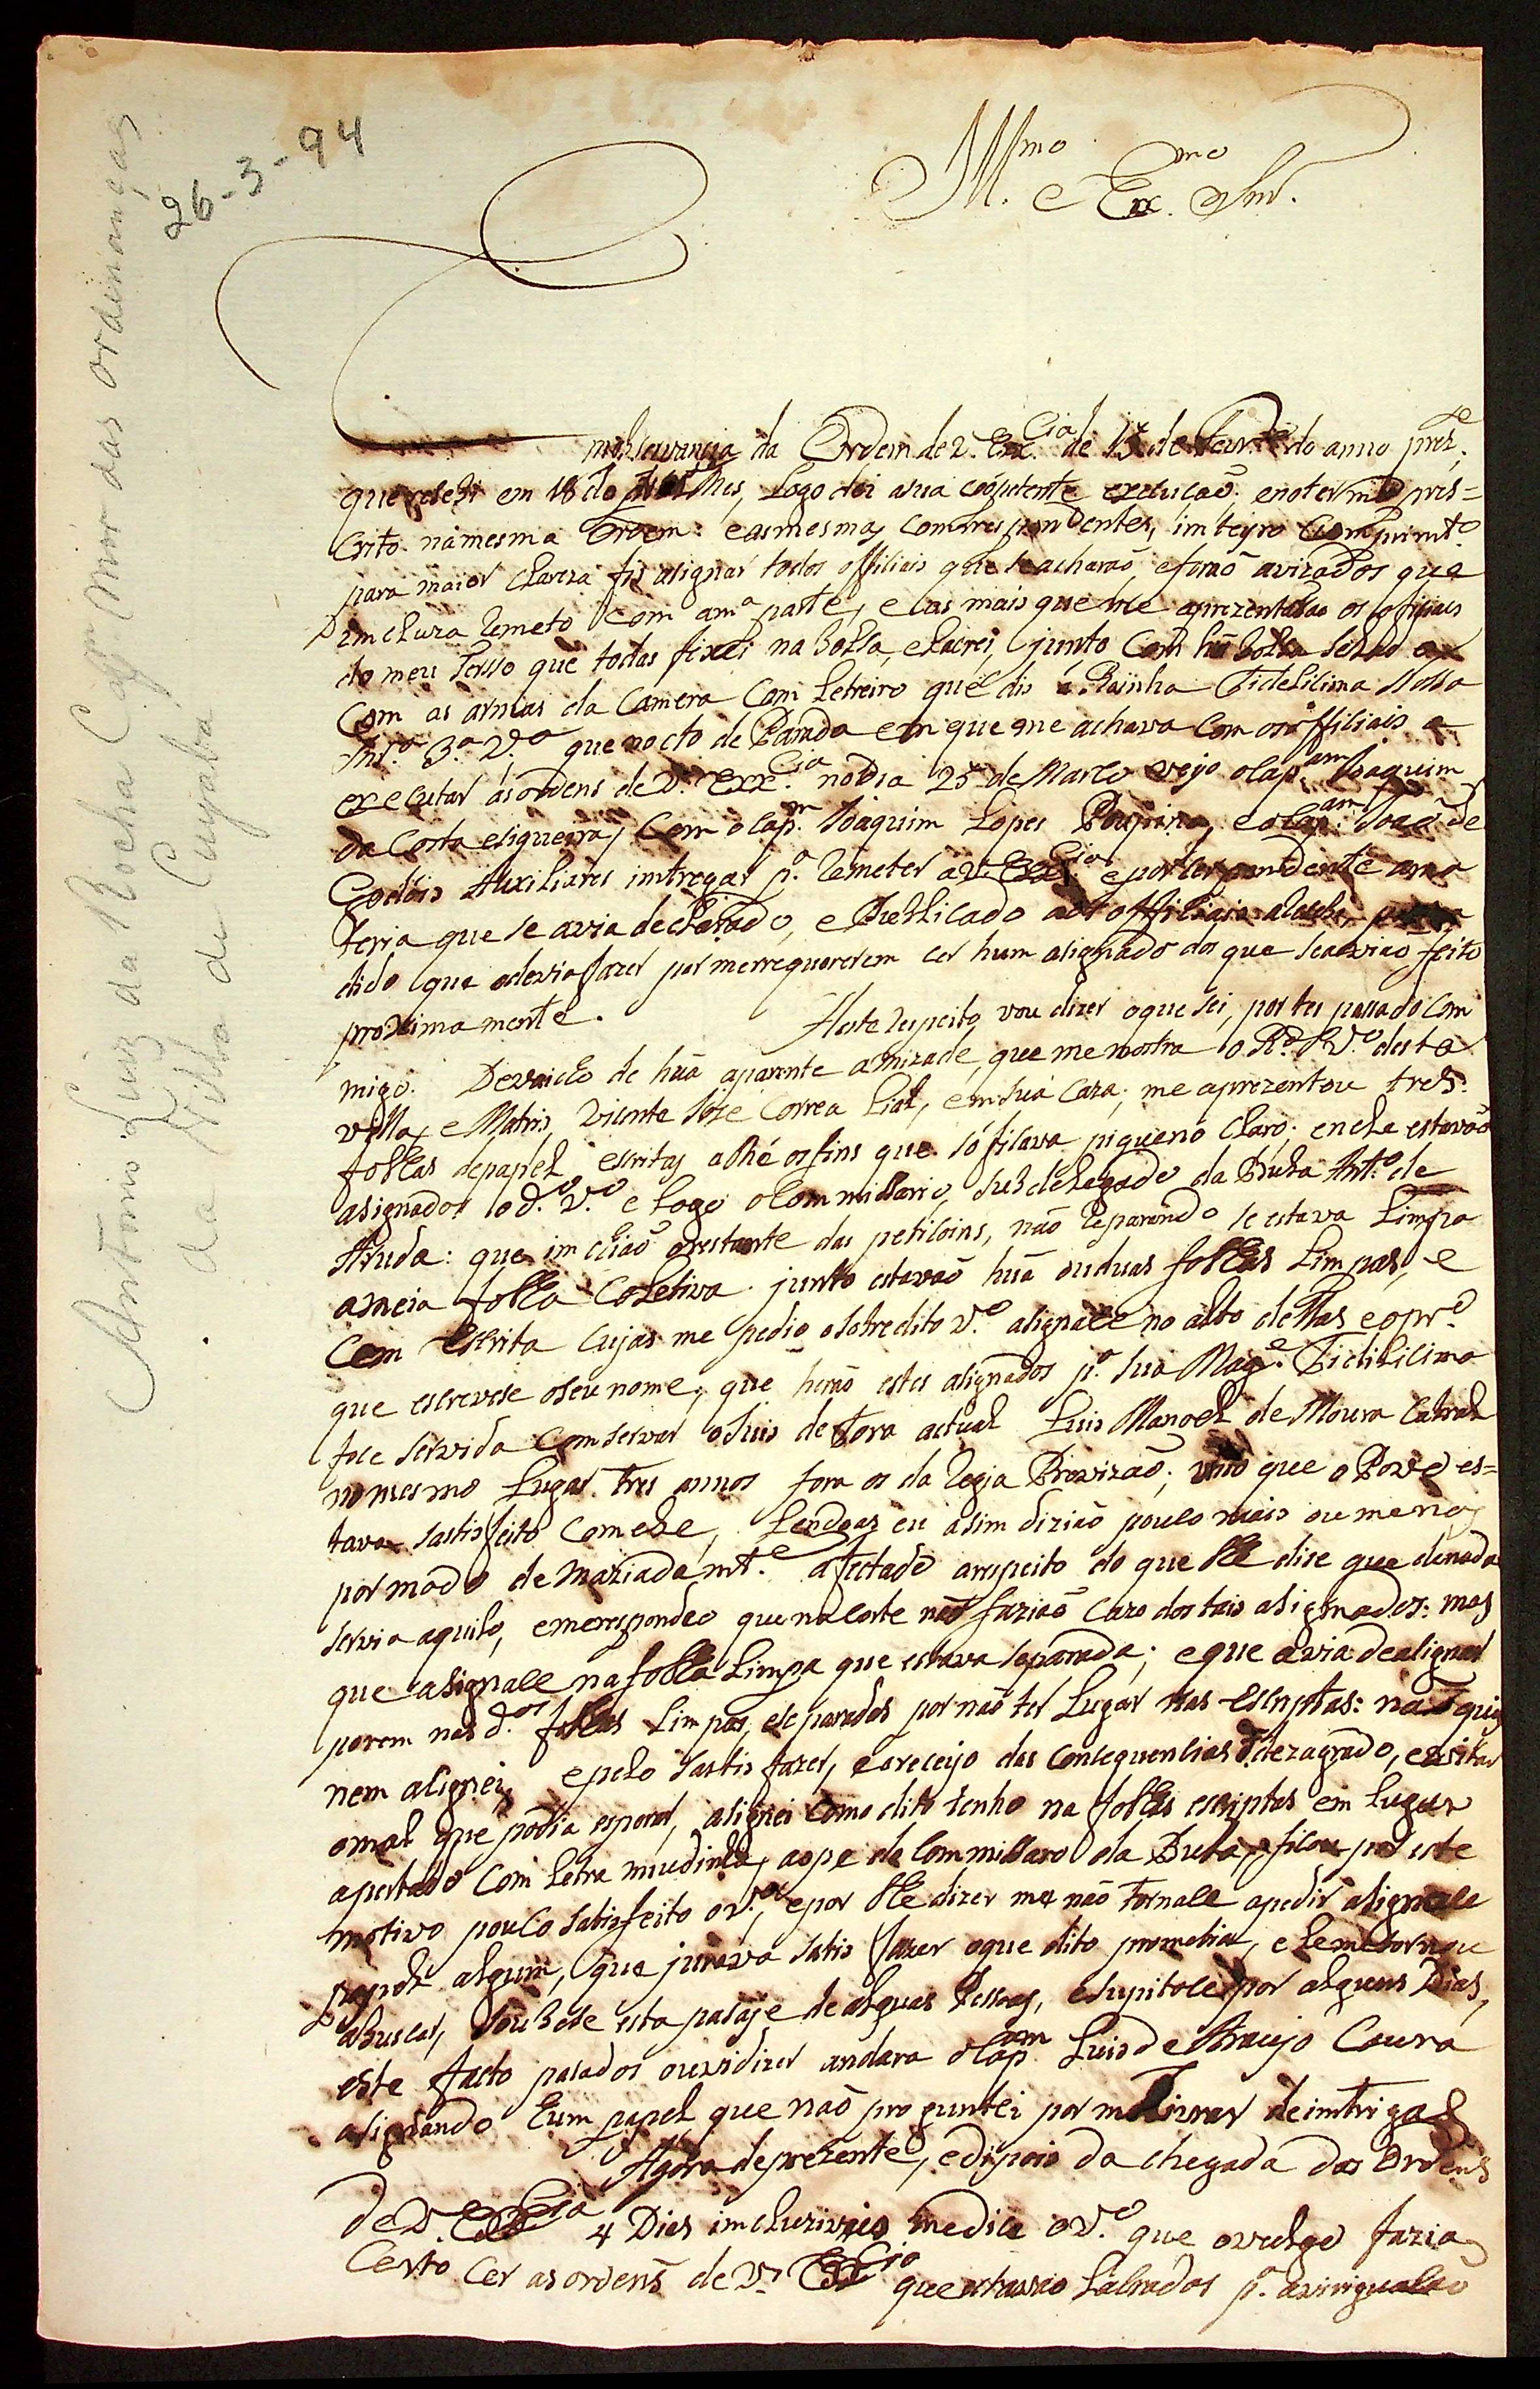 26-3-94
Antonio Luiz da Rocha Capm Mor das ordinanças
da Villa du Cuyaba
Illmo e Exmo Snr.
mobservançia da Ordem de V. Excia de 15 de Feurro do anno prezte,
que resebi em 18 do Mes, Logo dei asua coopetente execucaõ; enotermo pres=
Crito namesma Ordem: easmesmas Comrespondentes, imteyro Comprimto
para maior clareza fis asignar todos offisiais que seacharaõ, eforaõ avizados que
imcluza Remeto com ama parte, e as mais que me aprezentaraõ os ofisiais
do meu Terso que todas fixei na bolsa, elacrei, junto Com hũa bolsa
Com as armas da Camera Com Letreiro que dis a Rainha Fidelicima Nossa
Snra 3.a V.a que no cto de Parada em que me achava Com os offiliais a
executar as ordens de V. Excia nodia 25 de Marco veyo oCapam Joaquim
da Costa esiqueira, Com oCapm Joaquim Lopes Poupino, e oCapam Joaõ de
Godois Auxiliares imtregar pa Remeter a V. Excia epor ser pendente ama
teria que se avia declarado, e Publicado aos offisiais
dido que odevia fazer por merrequererem ser hum asignado dos que seaviaõ feito
proximamente. Aeste respeito vou dizer oque sei, por ter passado Com
migo. Devaicho de hũa aparente amizade, que me mostra o Rdo R Vo desta
villa, e Matris, Vicente Joze Correa Lial, em sua Caza; me aprezentou tres
folhas depapel escritas athé osfins que só ficava piqueno claro; enele estavaõ
asignados o do Vo e Logo oCommissario, Subdelegado da Bula Anto de
Arruda: que imcliaõ orestante das peticoins, naõ Reparando se estava Limpa
ameia folha Coletiva. junto estavaõ hũa ouduas folhas Limpas, e
Cem Escrita Cujas me pedio osobredito Vo asignace no alto dellas eopro
que escrevese oseu nome, que heraõ estes asignados pa Sua Mage Fidilicima
foce servida Comservar oJuis de Fora actual Luis Manoel de Moura Cabral
nomesmo Lugar tres annos fora os da Regia Provizaõ; visto que o Povo es=
tava sastisfeito Comele, Lendoas eu asim diziaõ pouco mais ou menos
por modo de maziadamte afectado arrespeito do que lhe dise que denada
servia aquilo, emerespondeo que na corte naõ faziaõ Cazo dos tais asignados: mas
que asignace na folha Limpa que estava separada; e que avia deasignar
porem nas das folhas Limpas, eseparadas por naõ ter Lugar nas Escriptas: naõ quis
nem asignei, epelo sastisfazer, e oreceijo das Consequencias dezagrado, evitar
omal que podia esperar, asignei Como dito tenho na folhas escriptas em Lugar
apertado Com Letra miudinha, aope do Commissario da Bula, eficou por este
motivo pouco satisfeito o Vo, epor lhe dizer me naõ tornace apedir asignace
papel algum, que jurava satisfazer oque dito prometia, e lemetornou
abuscar, soubese esta pasaje dealguas Pessoas, esupitoce por alguens Dias,
este facto pasados ouvi dizer andara oCapam Luis de Araujo Coura
asignando hum papel que naõ preguntei por m Livrar deimtrigas
Agora deprezente, edipois da chegada das Ordens
de V. Excia 4 Dias imcluzivies medice o Vo que ovulgo fazia
Certo Cer as ordens de V. Excia que estavaõ Lacradas pa averigualaõ